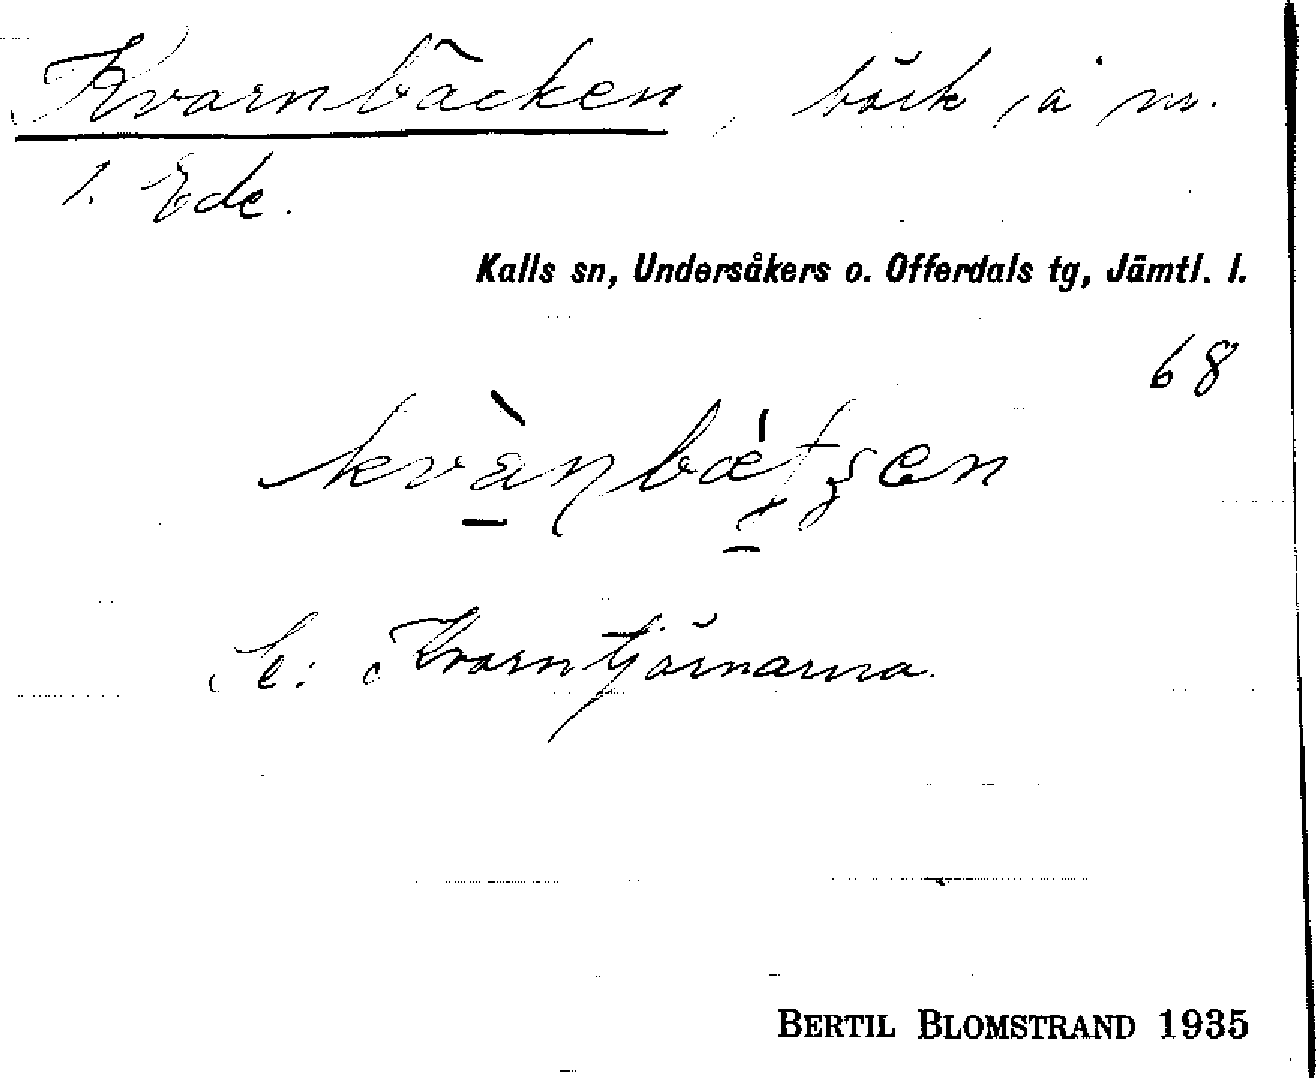 Kvarnbäcken, bäck, å nr.
1. Ede.
Kalls sn, Undersåkers o. Offerdals tg, Jämtl. l.
68
Se: Kvarntjärnarna.
BERTIL BLOMSTRAND 1935